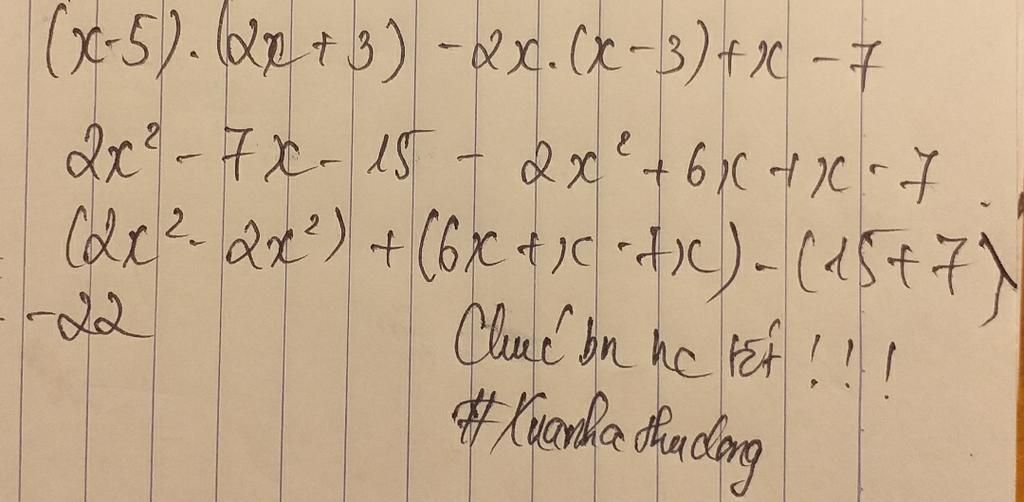 (x-5).(2x+3) - 2x.(x-3)+x-7
2x² - 7x - 15 - 2x² + 6x + x - 7
(2x² - 2x²) + (6x + x - 7x) - (15+7)
= -22
Chuć bn hc tốt !!!
#Xuanhathudong